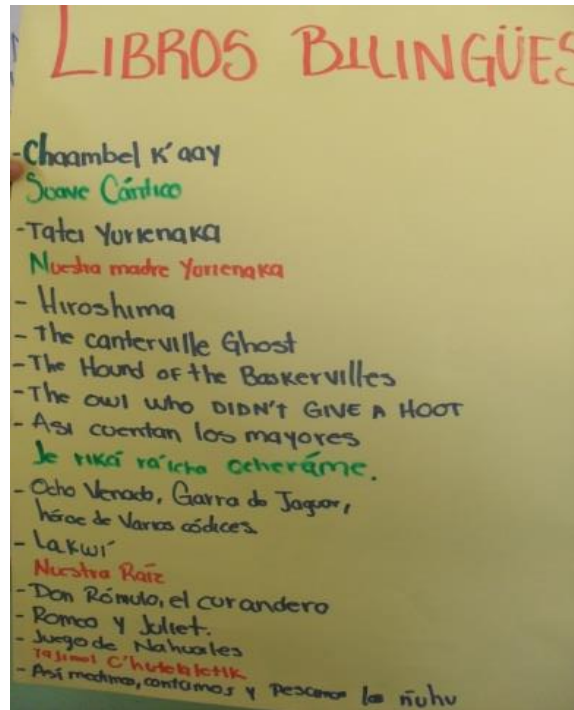 LIBROS BILINGÜES
- Chaambel K'aay
Suave Cántico
- Tatei Yurienaka
Nuestra madre Yurienaka
- Hiroshima
- The canterville Ghost
- The Hound of the Baskervilles
- The owl who DIDN'T GIVE A HOOT
- Asi cuentan los mayores
Je riká ra'icha ocheráme.
- Ocho Venado, Garra de Jaguar,
héroe de Varios códices.
- Lakwi'
Nuestra Raíz
- Don Rómulo, el curandero
- Romeo y Juliet.
- Juego de Nahuales
Tajimol C'hulelaletik
- Así medimos, contamos y Pescamos los ñuhu